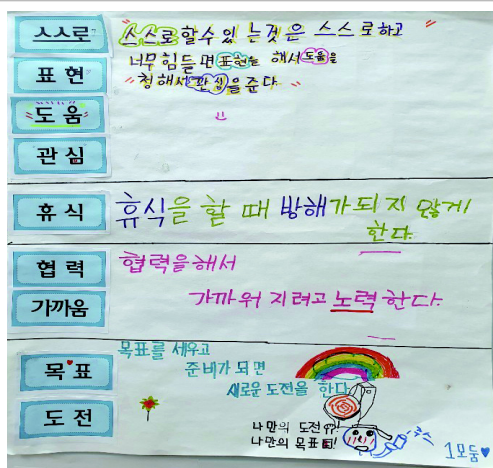 스스로
"스스로 할수 있는것은 스스로하고
표현
너무 힘들면 표현을 해서 도움을
도움
청해서 관심을 준다."
관심
휴식
휴식을 할 때 방해가되지 않게
한다.
협력
협력을해서
가까움
가까워 지려고 노력한다.
목표
목표를 세우고
준비가 되면
새로운 도전을 한다
도전
나만의 도전!
나만의 목표!
1모둠